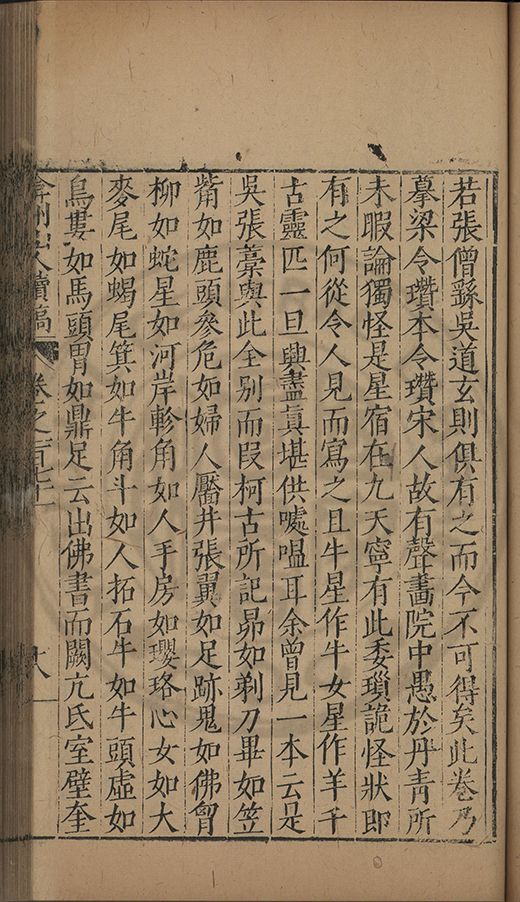 若張僧繇吳道玄則俱有之而今不可得矣此卷乃
摹梁令瓚本令瓚宋人故有聲畫院中愚於丹青所
未暇論獨怪是星宿在九天寧有此委瑣詭怪狀即
有之何從令人見而寫之且牛星作牛女星作羊千
古靈匹一旦興盡眞堪供噱嗢耳余曾見一本云是
吳張藁與此全别而叚柯古所記昴如剃刀畢如笠
觜如鹿頭參危如婦人靨井張翼如足跡鬼如佛胷
柳如蛇星如河岸軫角如人手房如瓔珞心女如大
麥尾如蝎尾箕如牛角斗如人拓石牛如牛頭虛如
鳥婁如馬頭胃如鼎足云出佛書而闕亢氐室壁奎
弇州山人續稿 卷之一百七十 十八